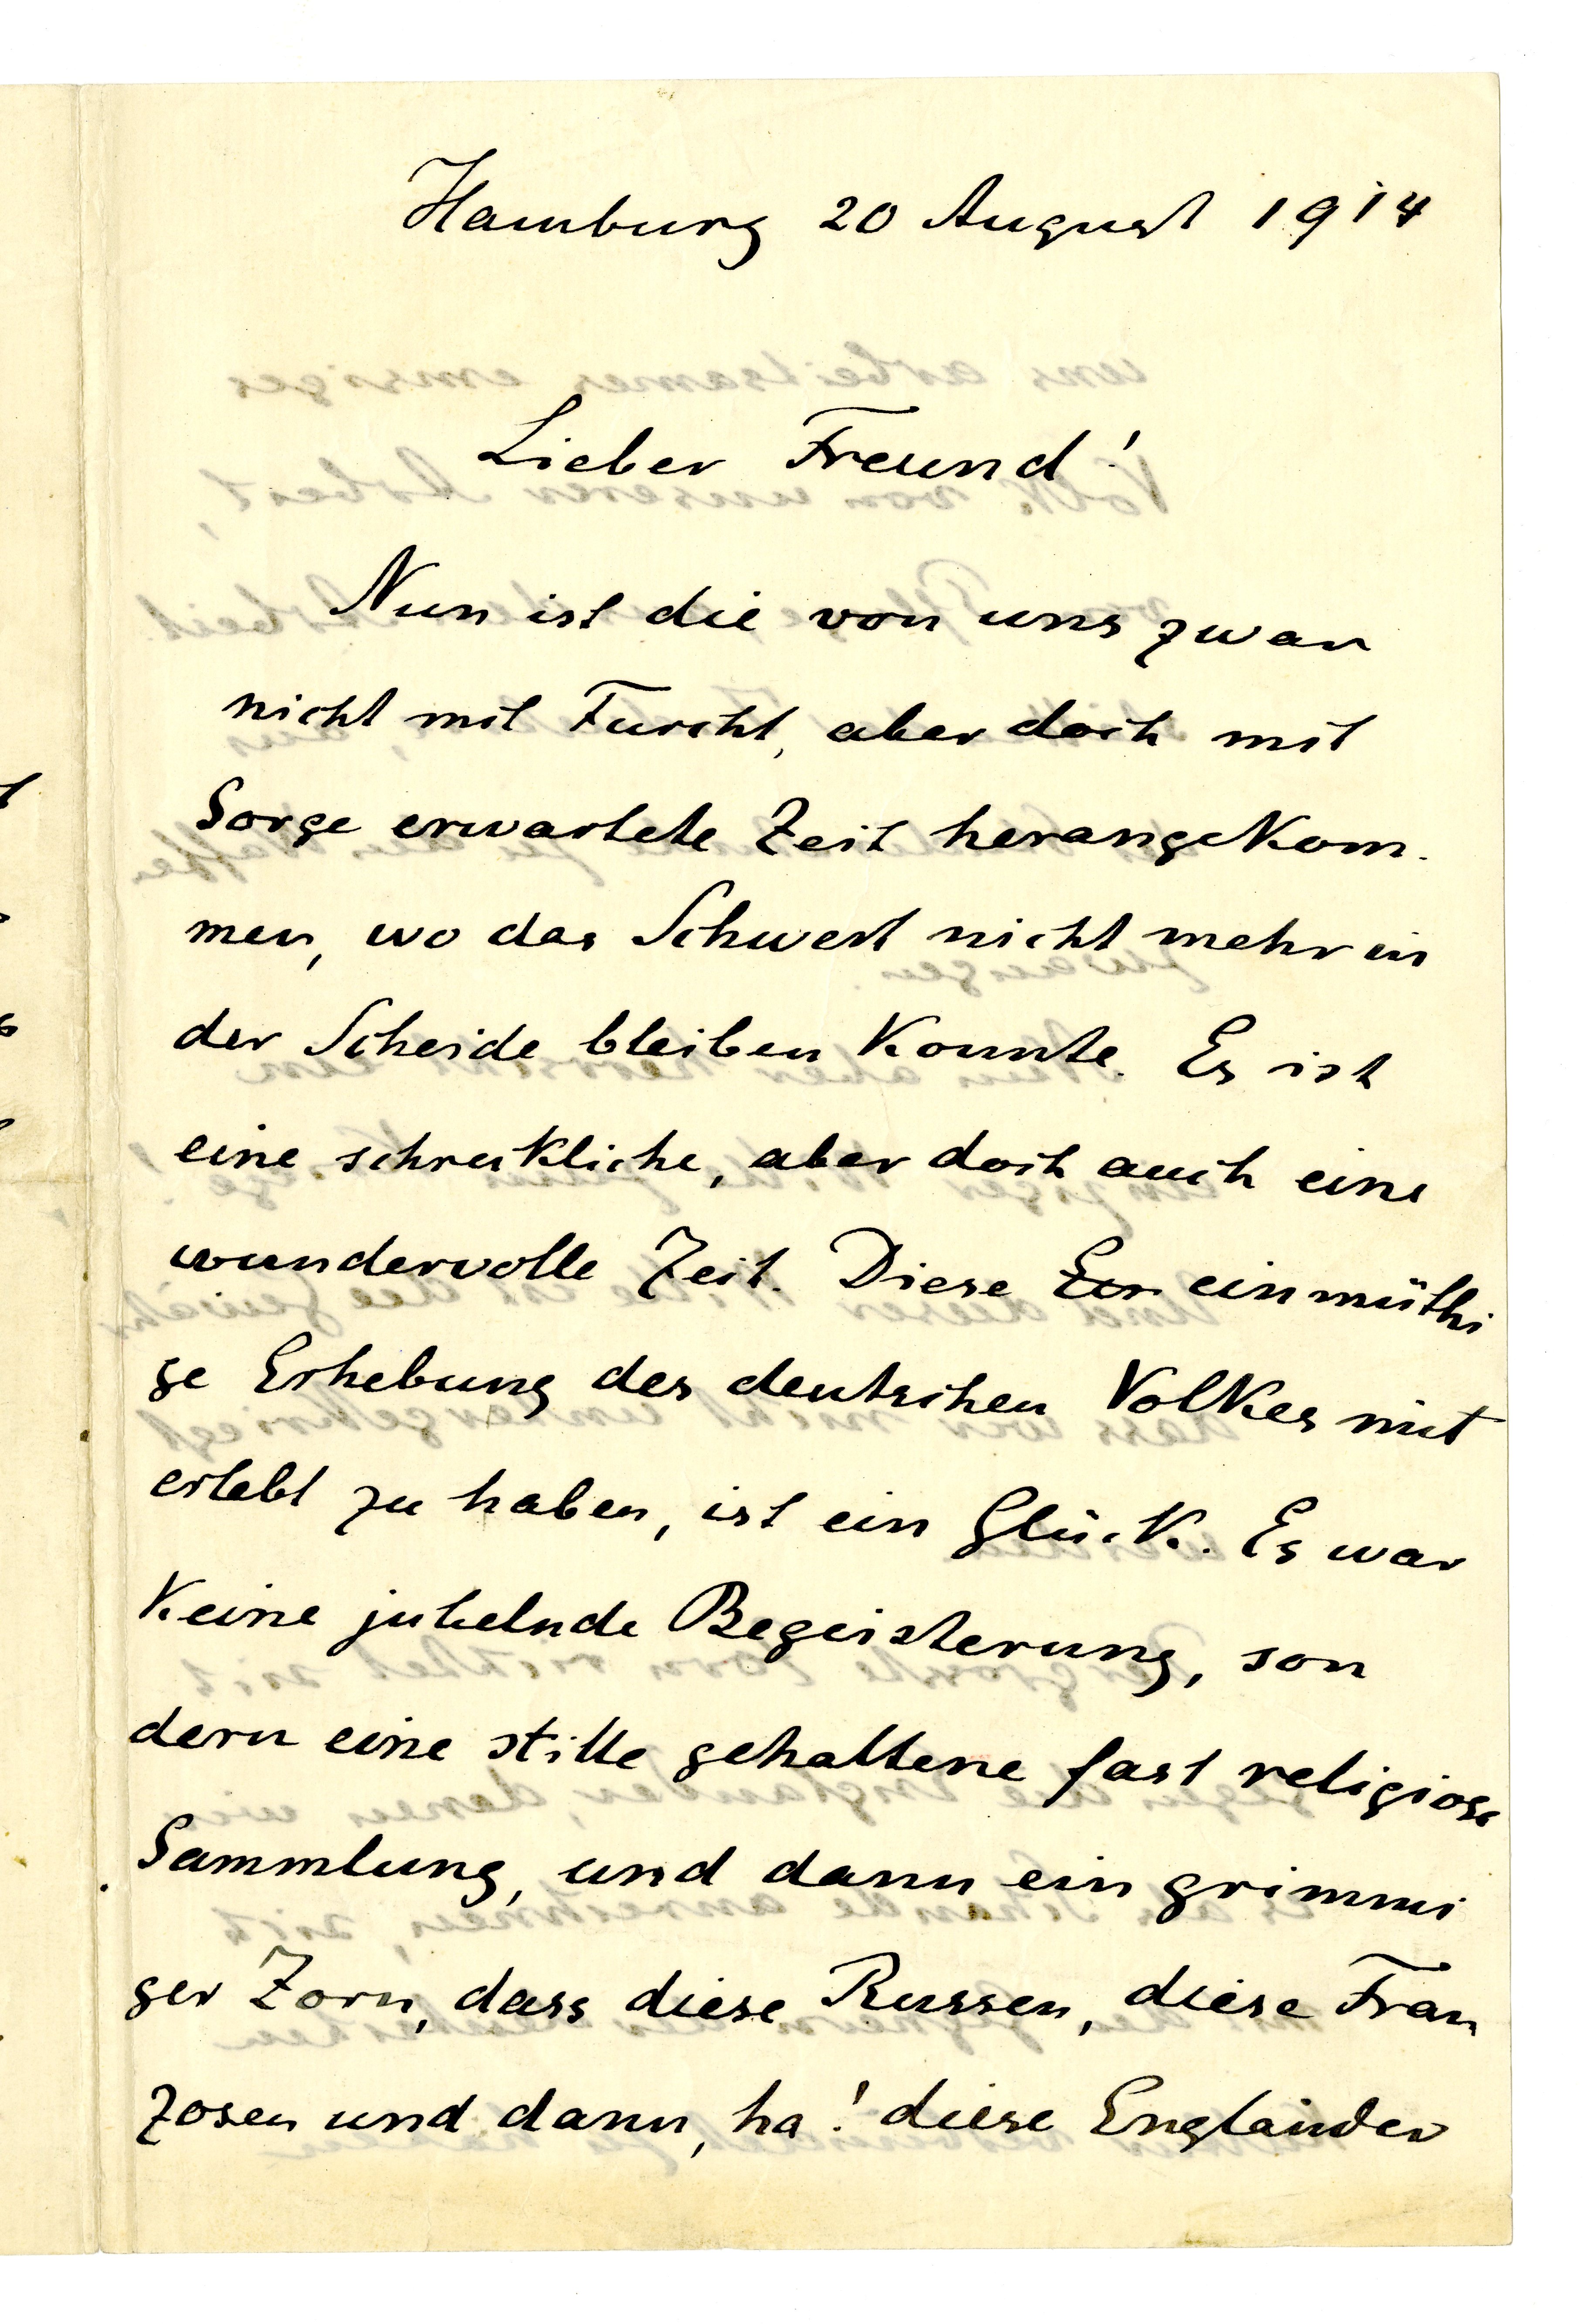 Hamburg 20 August 1914
Lieber Freund!
Nun ist die von uns zwar
nicht mit Furcht, aber doch mit
Sorge erwartete Zeit herangekom-
men, wo das Schwert nicht mehr in
der Scheide bleiben konnte. Es ist
eine schreckliche, aber doch auch eine
wundervolle Zeit. Diese einmüthi
ge Erhebung des deutschen Volkes mit
erlebt zu haben, ist ein Glück. Es war
keine jubelnde Begeisterung, son
dern eine stille gehaltene fast religiose
Sammlung, und dann ein grimmi
ger Zorn, dass diese Russen, diese Fran
zosen und dann, ha! diese Engländer